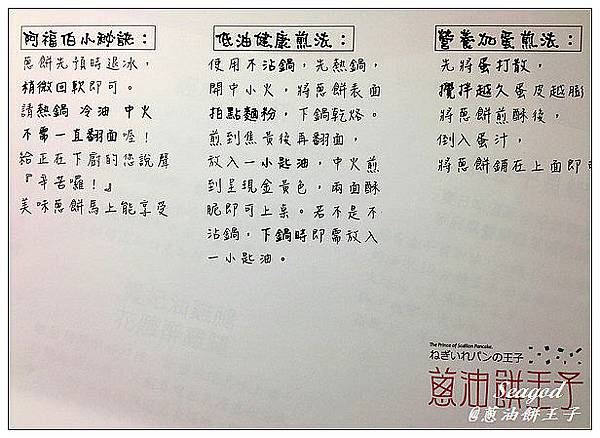 阿福伯小祕訣：
蔥餅先預時退冰，
稍微回軟即可。
請熱鍋 冷油 中火
不需一直翻面喔！
給正在下廚的您說聲
『辛苦囉！』
美味蔥餅馬上能享受
低油健康煎法：
使用不沾鍋，先熱鍋，
開中小火，將蔥餅表面
拍點麵粉，下鍋乾烙。
煎到焦黃後再翻面，
放入一小匙油，中火煎
到呈現金黃色，兩面酥
脆即可上桌。若不是不
沾鍋，下鍋時即需放入
一小匙油。
營養加蛋煎法：
先將蛋打散，
攪拌越久蛋皮越膨
將蔥餅煎酥後，
倒入蛋汁，
將蔥餅鋪在上面即可
The Prince of Scallion Pancake.
ねぎいれパンの王子
蔥油餅王子
Seagod
@蔥油餅王子